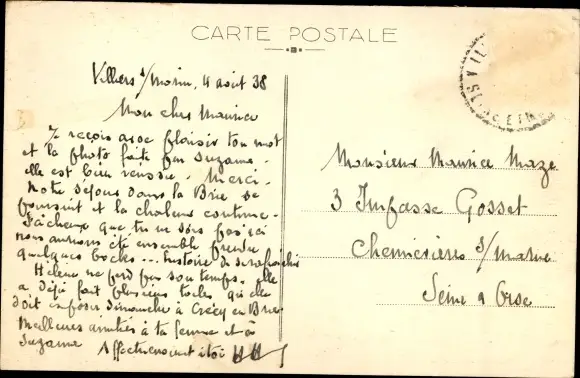 CARTE POSTALE
Villiers s/Morin, 4 août 38
Mon cher Maurice
Je reçois avec plaisir ton mot
et la photo faite par Suzanne.
elle est bien réussie. Merci.
Notre séjour dans la Brie se
poursuit et la chaleur continue.
Fâcheux que tu ne sois pas ici
nous aurions été ensemble prendre
quelques bocks... histoire de se rafraîchir
Hélène ne perd pas son temps. elle
a déjà fait plusieurs toiles qu'elle
doit exposer dimanche à Crécy en Brie
Meilleures amitiés à ta femme et à
Suzanne Affectueusement à toi
Monsieur Maurice Maze
3 Impasse Gosset
Chennevières s/Marne
Seine & Oise